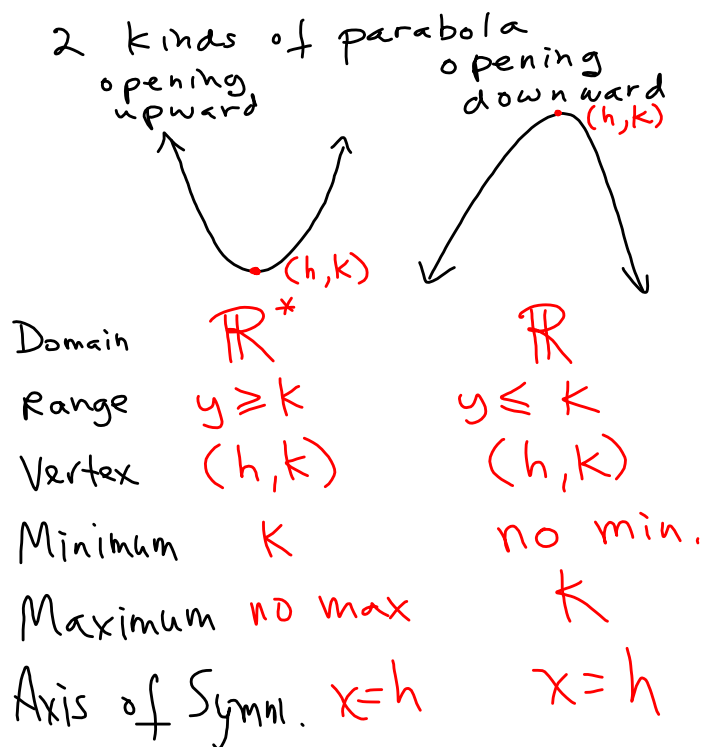 2 kinds of parabola
opening upward
opening downward
(h,k)
(h,k)
Domain ℝ* ℝ
Range y ≥ k y ≤ k
Vertex (h,k) (h,k)
Minimum k no min.
Maximum no max k
Axis of Symm. x=h x=h